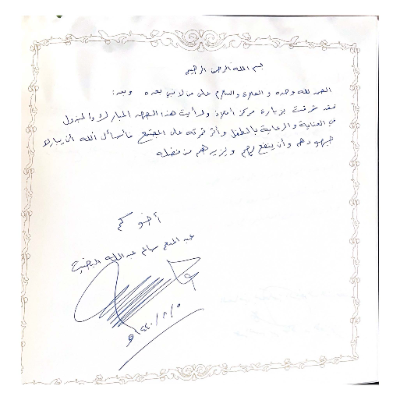 بسم الله الرحمن الرحيم
الحمد لله وحده والصلاة والسلام على من لا نبي بعده وبعد:
فقد تشرفت بزيارة مركز ورأيت هذا الجهد المبارك والمبذول
من العناية والرعاية بالطفل وأثر ذلك على المجتمع فأسأل الله أن يبارك
جهودهم وأن ينفع بهم ويزيدهم من فضله
أخوكم
عبد الله